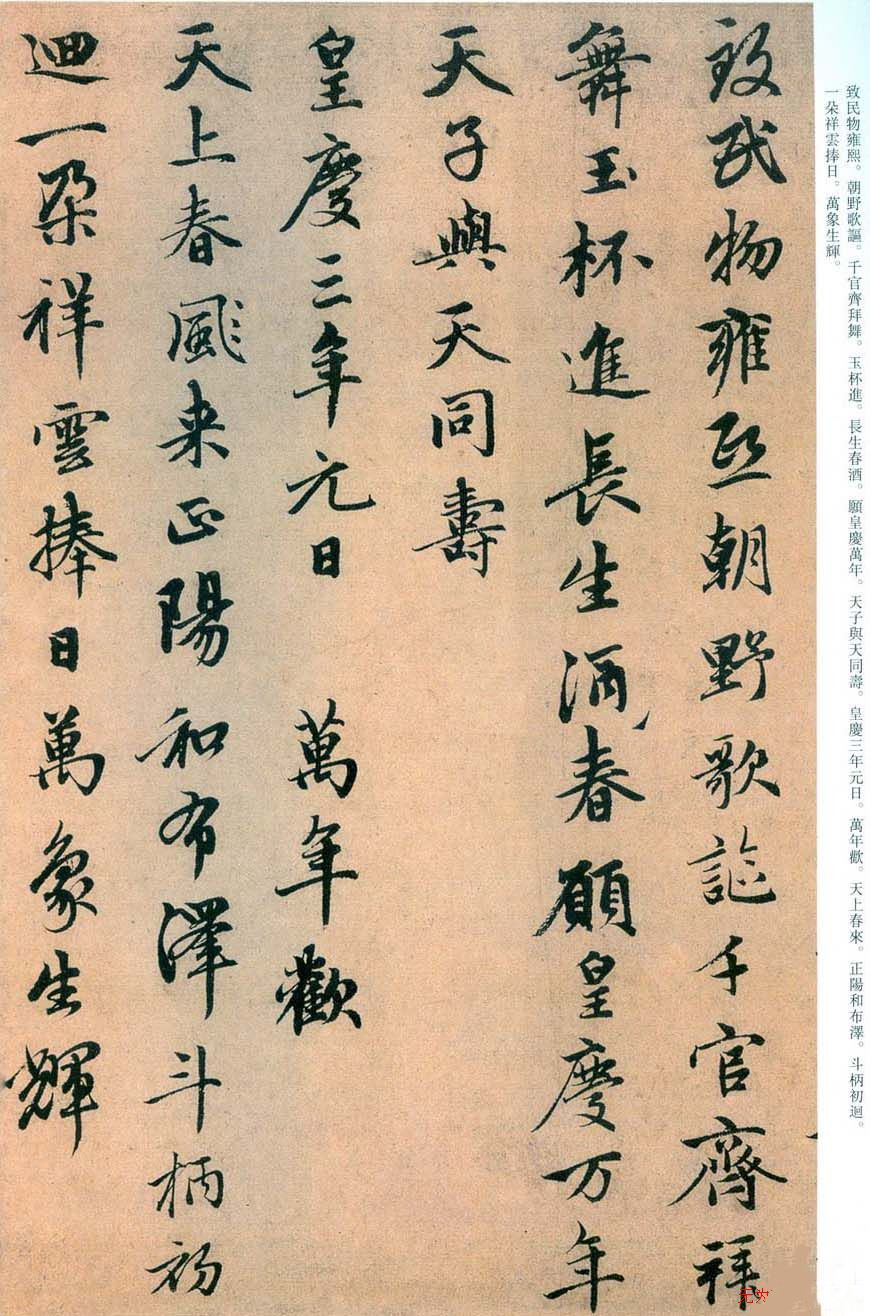 致民物雍熙。朝野歌謳。千官齊拜舞。玉杯進。長生春酒。願皇慶萬年。天子與天同壽。皇慶三年元日。萬年歡。天上春來。正陽和布澤。斗柄初迴。
一朵祥雲捧日。萬象生輝。
致民物雍熙朝野歌謳千官齊拜
舞玉杯進長生酒春願皇慶万年
天子與天同壽
皇慶三年元日 萬年歡
天上春風来正陽和布澤斗柄初
迴一朶祥雲捧日萬象生輝